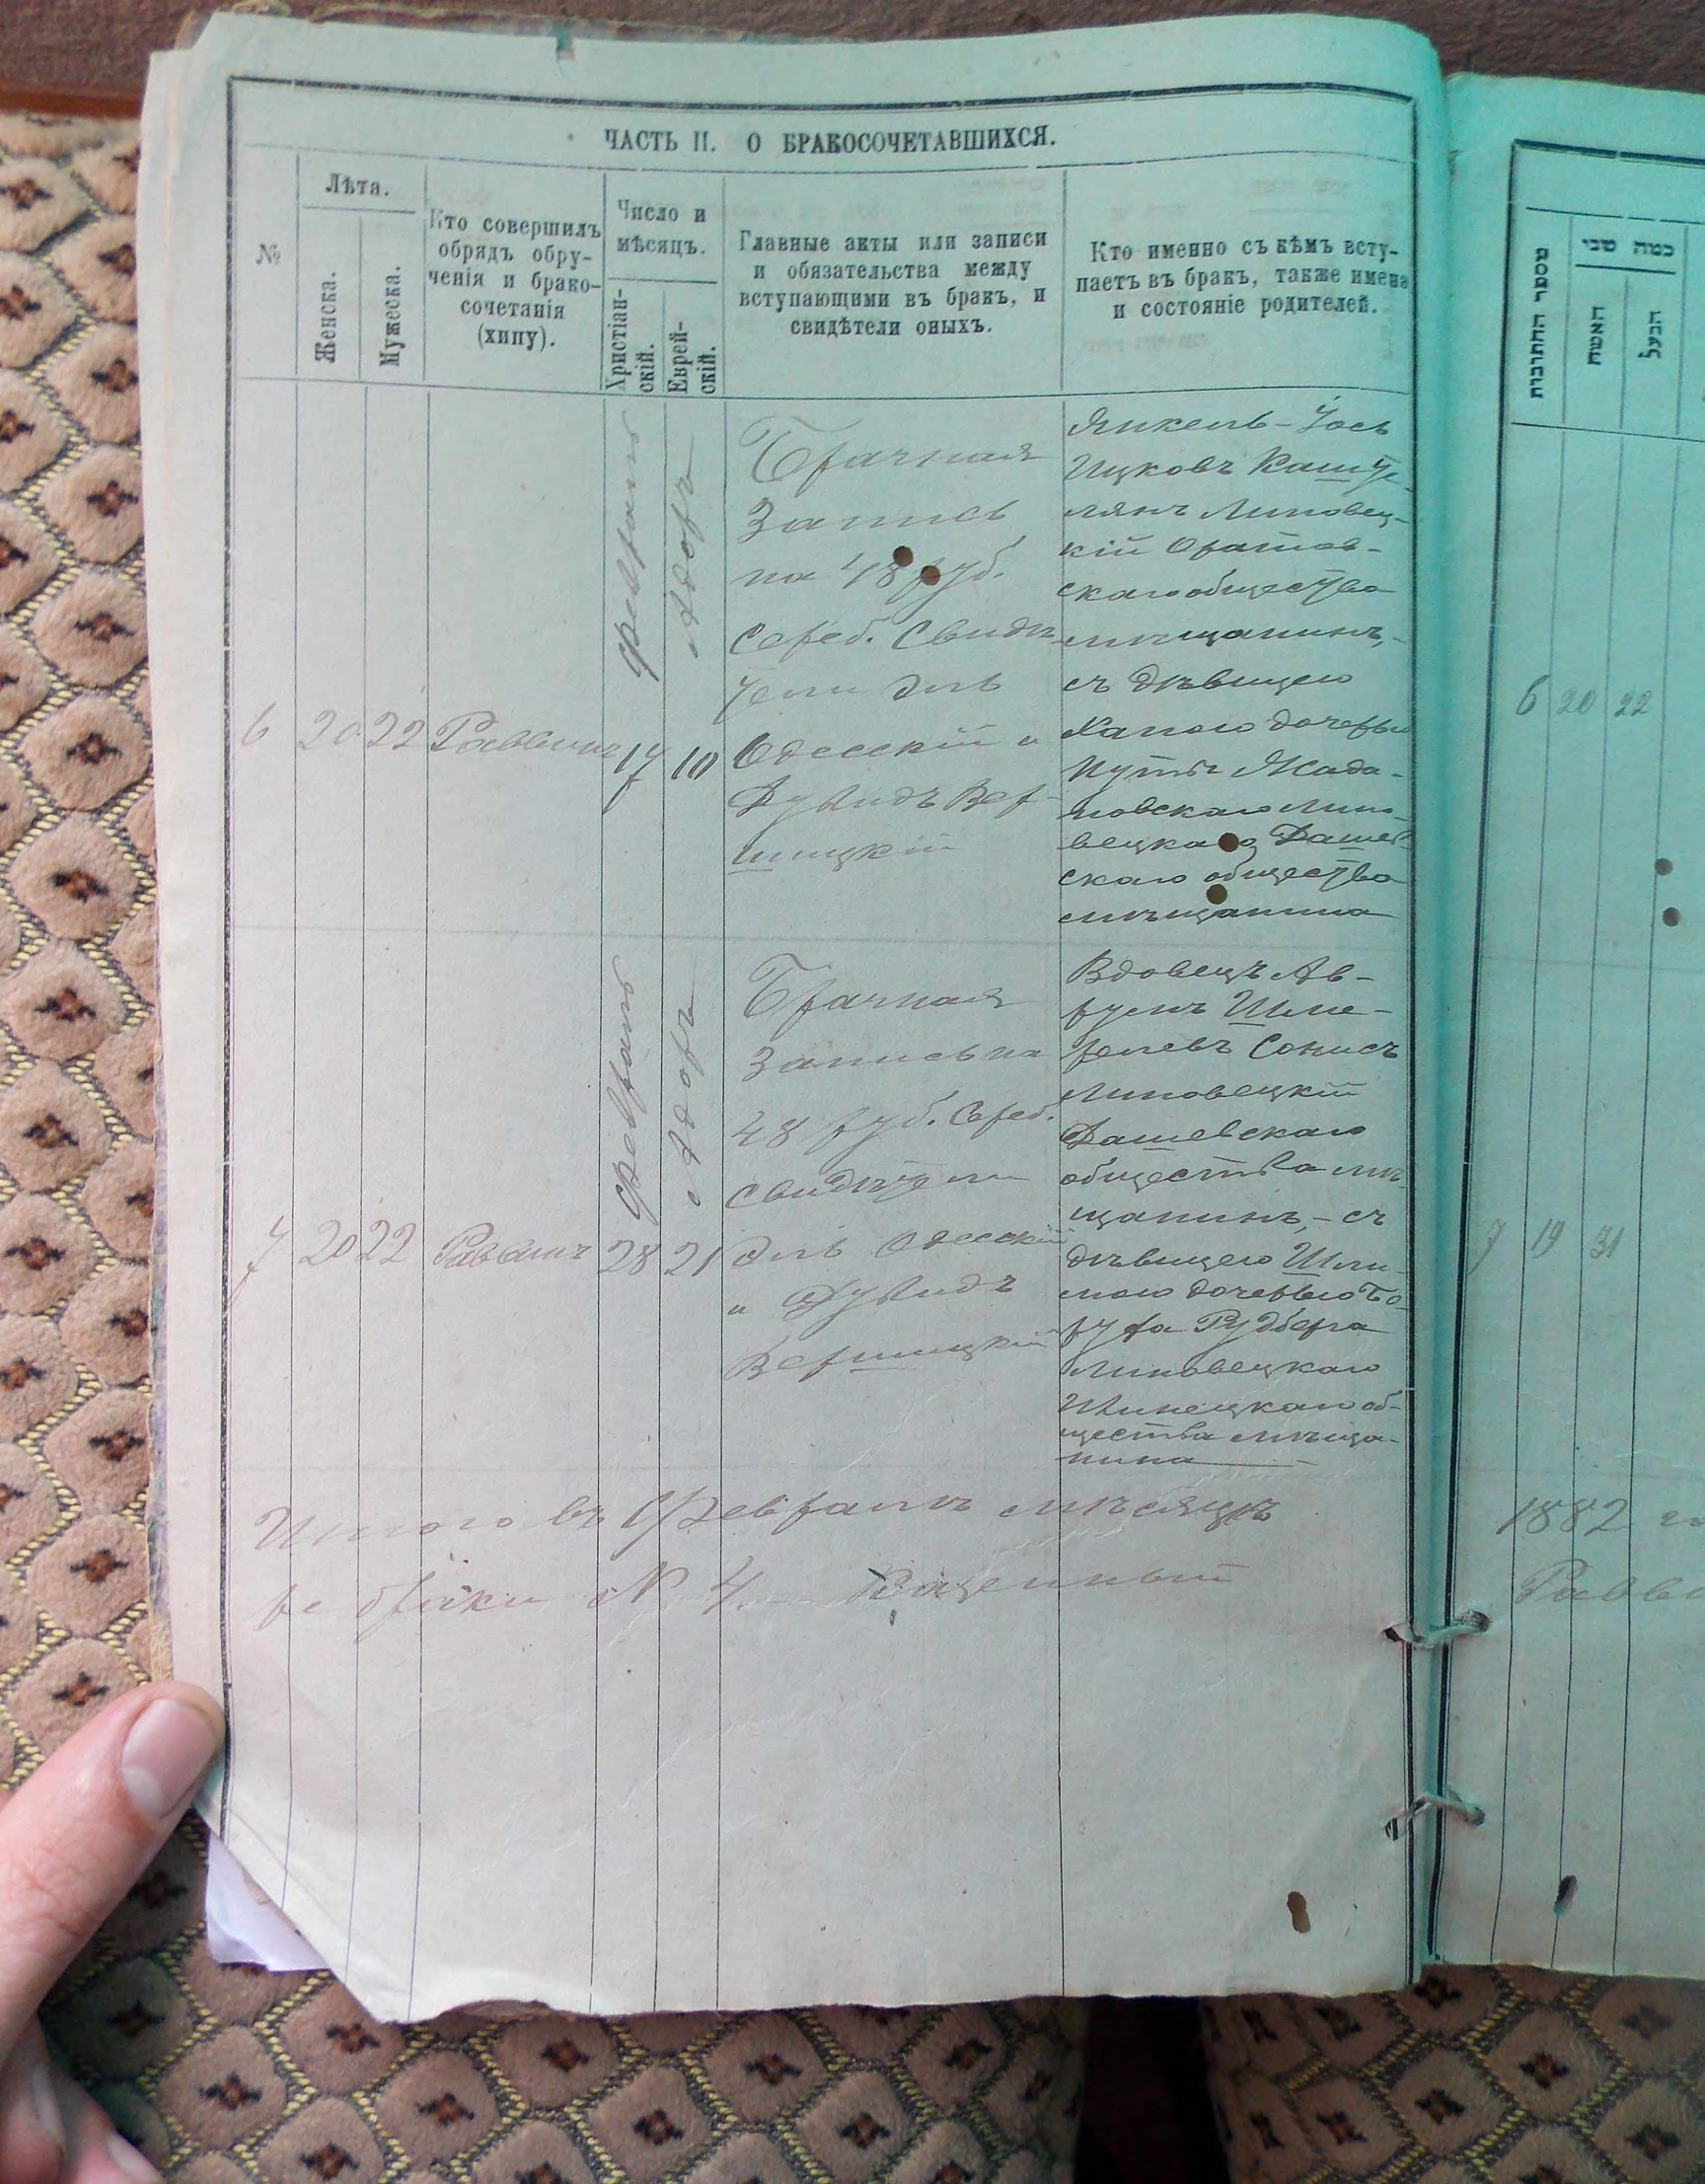 ЧАСТЬ II. О БРАКОСОЧЕТАВШИХСЯ.
№
Лѣта.
Женска.
Мужеска.
Кто совершилъ
обрядъ обру-
ченія и брако-
сочетанія
(хипу).
Число и
мѣсяцъ.
Христіан-
скій.
Еврей-
скій.
Главные акты или записи
и обязательства между
вступающими въ бракъ, и
свидѣтели оныхъ.
Кто именно съ кѣмъ всту-
паетъ въ бракъ, также имена
и состояніе родителей.
6
20
22
Раввинъ
февраль
17
Адоръ
10
Брачная
запись
на 48 руб.
сереб. Свидѣ
тели Эль
Одесскій и
Дувидъ Вер-
шицкій
Янкель-Іось
Ицковъ
лянъ Липовец-
кій Оратов-
скаго общества
мѣщанинъ,-
съ дѣвицею
Ханою дочерью
Жада-
новскаго Липо-
вецкаго Дашев-
скаго общества
мѣщанина
7
20
22
Раввинъ
февраль
28
Адоръ
21
Брачная
запись на
48 руб. Сереб.
Свидѣтели
Эль Одесскій
и Дувидъ
Вершицкій
Вдовецъ Ав-
румъ Шме-
Липовецкій
Дашевскаго
общества мѣ-
щанинъ,- съ
дѣвицею
дочерью Бо-
руха Рудберга
Липовецкаго
об-
щества мѣща-
нина
Итого въ Февралѣ мѣсяцѣ
браки № 4
מספר החתונות
כמה שני
האשה
הבעל
6 20 22
7 19 31
1882